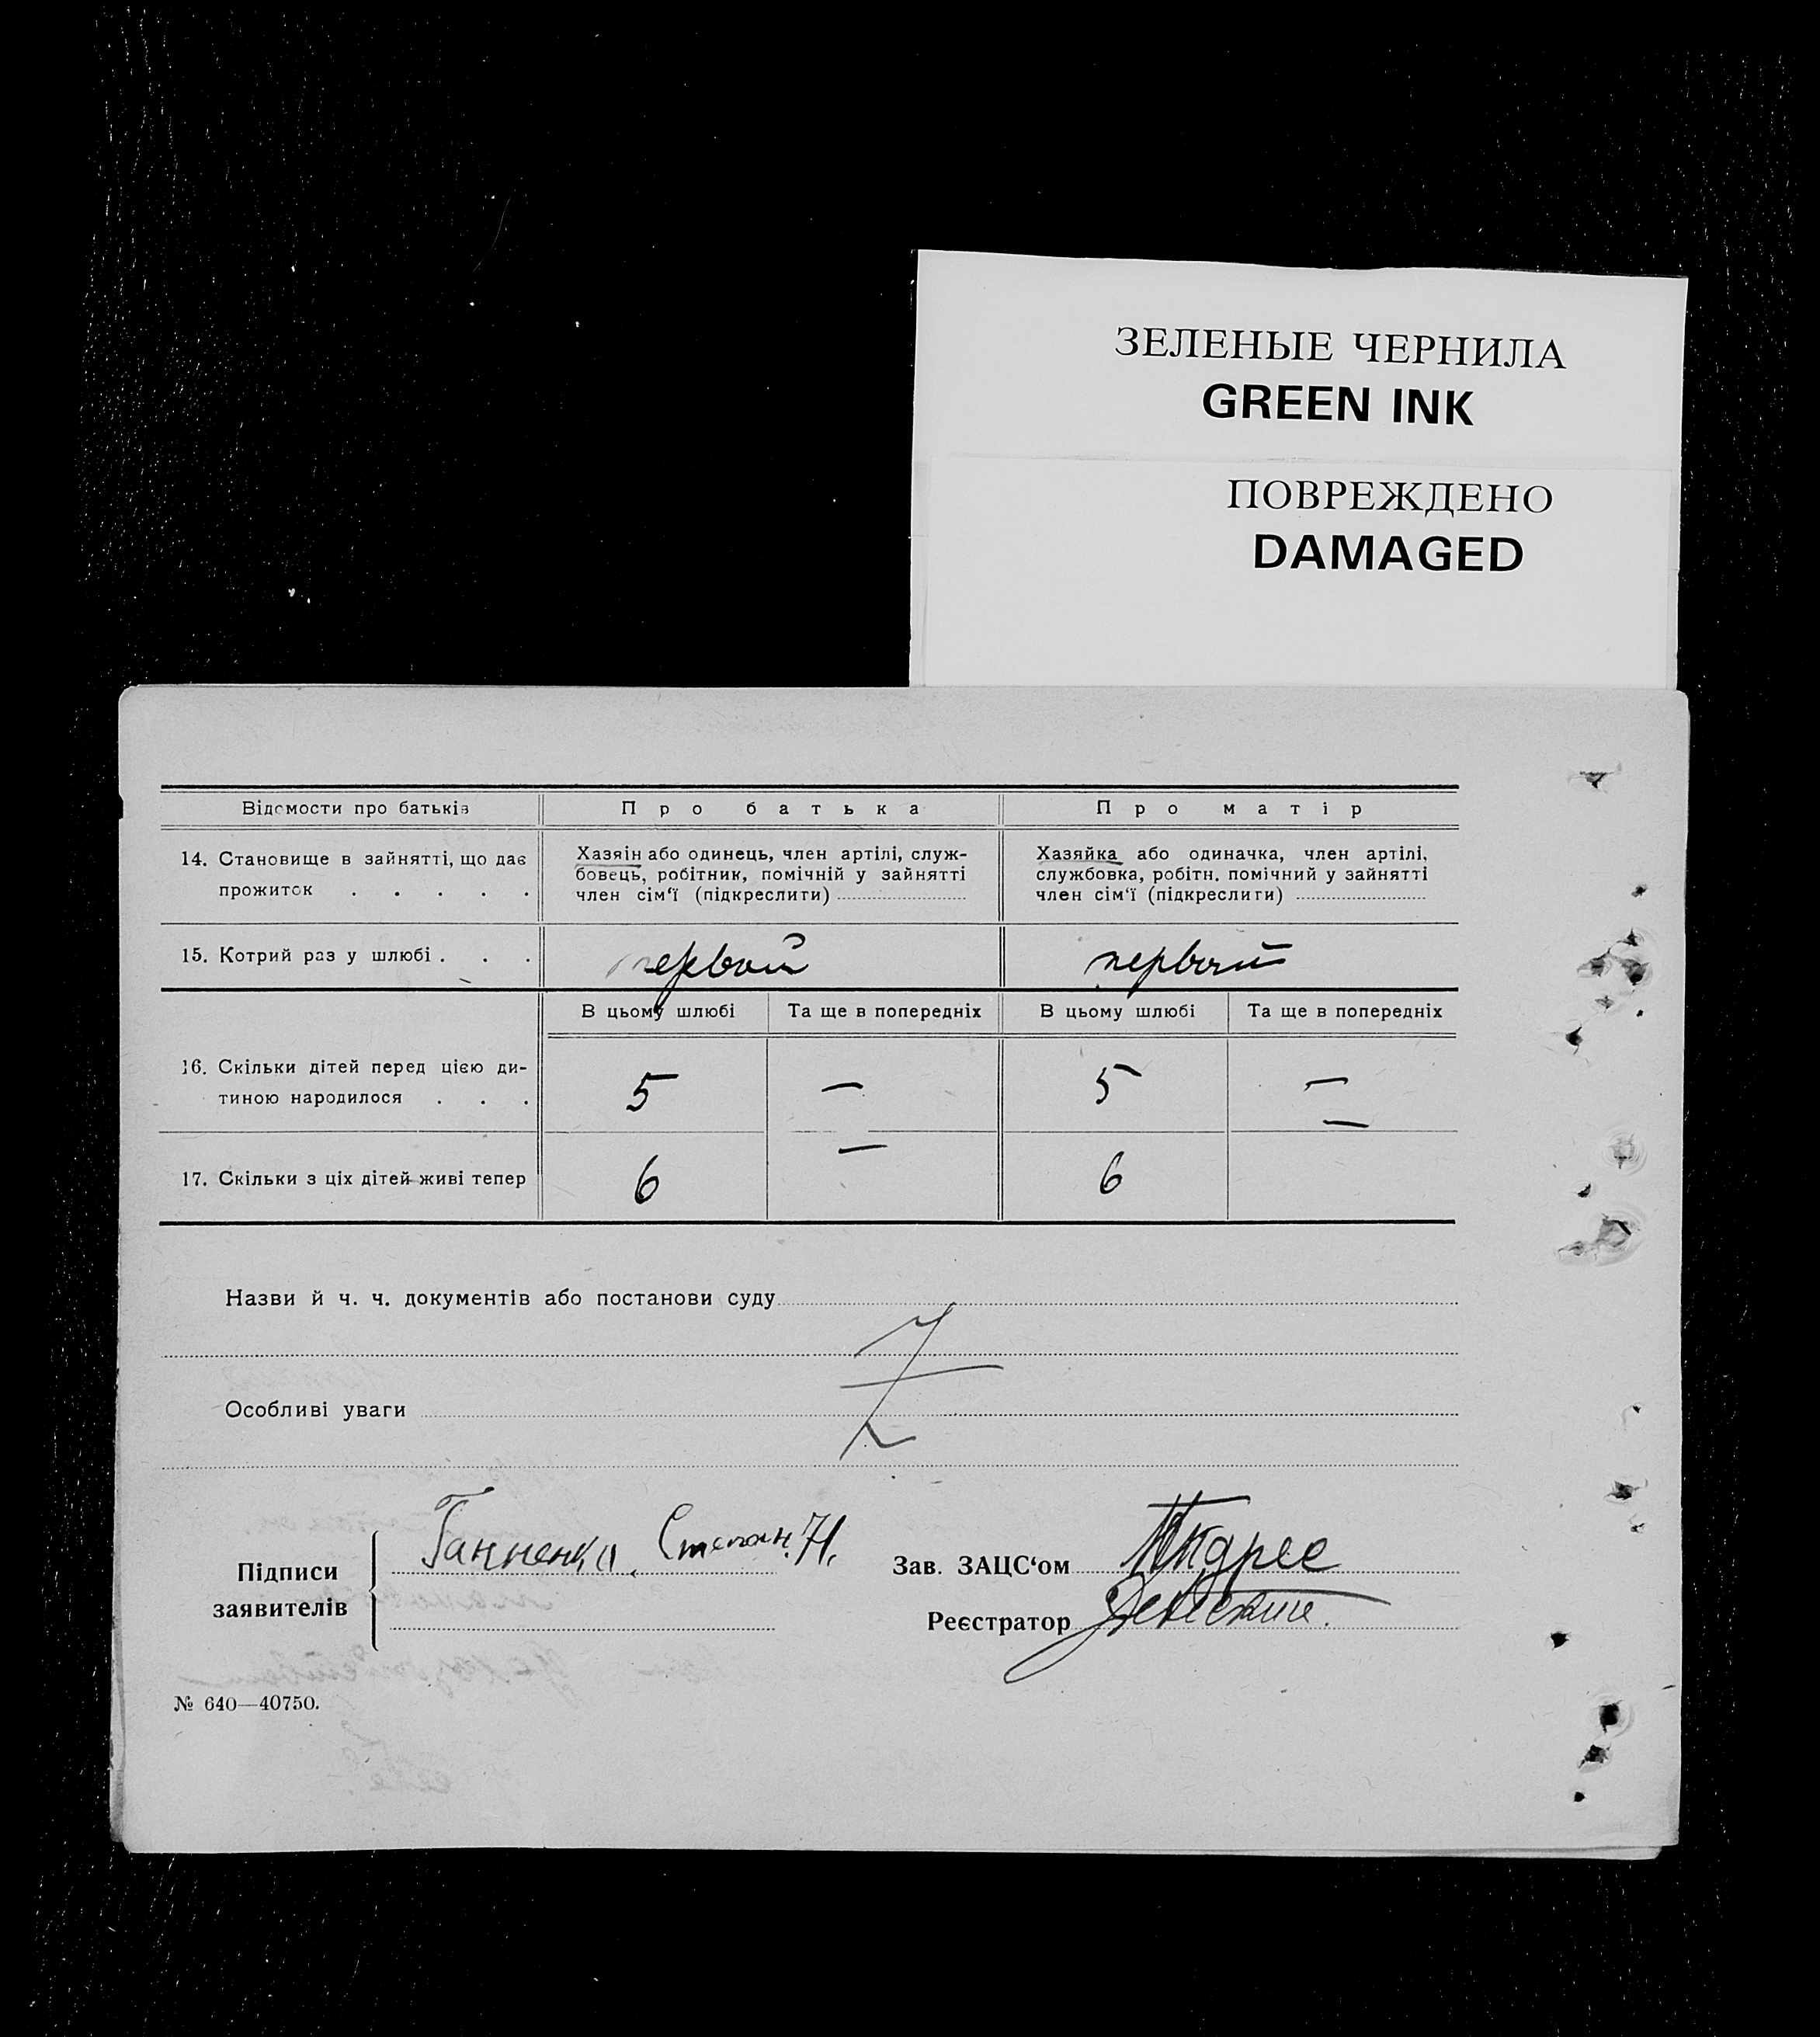 ЗЕЛЕНЫЕ ЧЕРНИЛА
GREEN INK
ПОВРЕЖДЕНО
DAMAGED
Відомости про батьків Про батька Про матір
14. Становище в зайнятті, що дає прожиток . . . . .
Хазяїн або одинець, член артілі, служ-
бовець, робітник, помічній у зайнятті
член сім‘ї (підкреслити)
Хазяйка або одиначка, член артілі,
службовка, робітн. помічний у зайнятті
член сім‘ї (підкреслити)
15. Котрий раз у шлюбі . . . первой первой
В цьому шлюбі Та ще в попередніх В цьому шлюбі Та ще в попередніх
16. Скільки дітей перед цією ди-
тиною народилося . . . 5 — 5 —
17. Скільки з ціх дітей живі тепер 6 — 6 —
Назви й ч. ч. документів або постанови суду
Особливі уваги
Підписи
заявителів
Степан. Н.
Зав. ЗАЦС‘ом
Реєстратор
№ 640—40750.